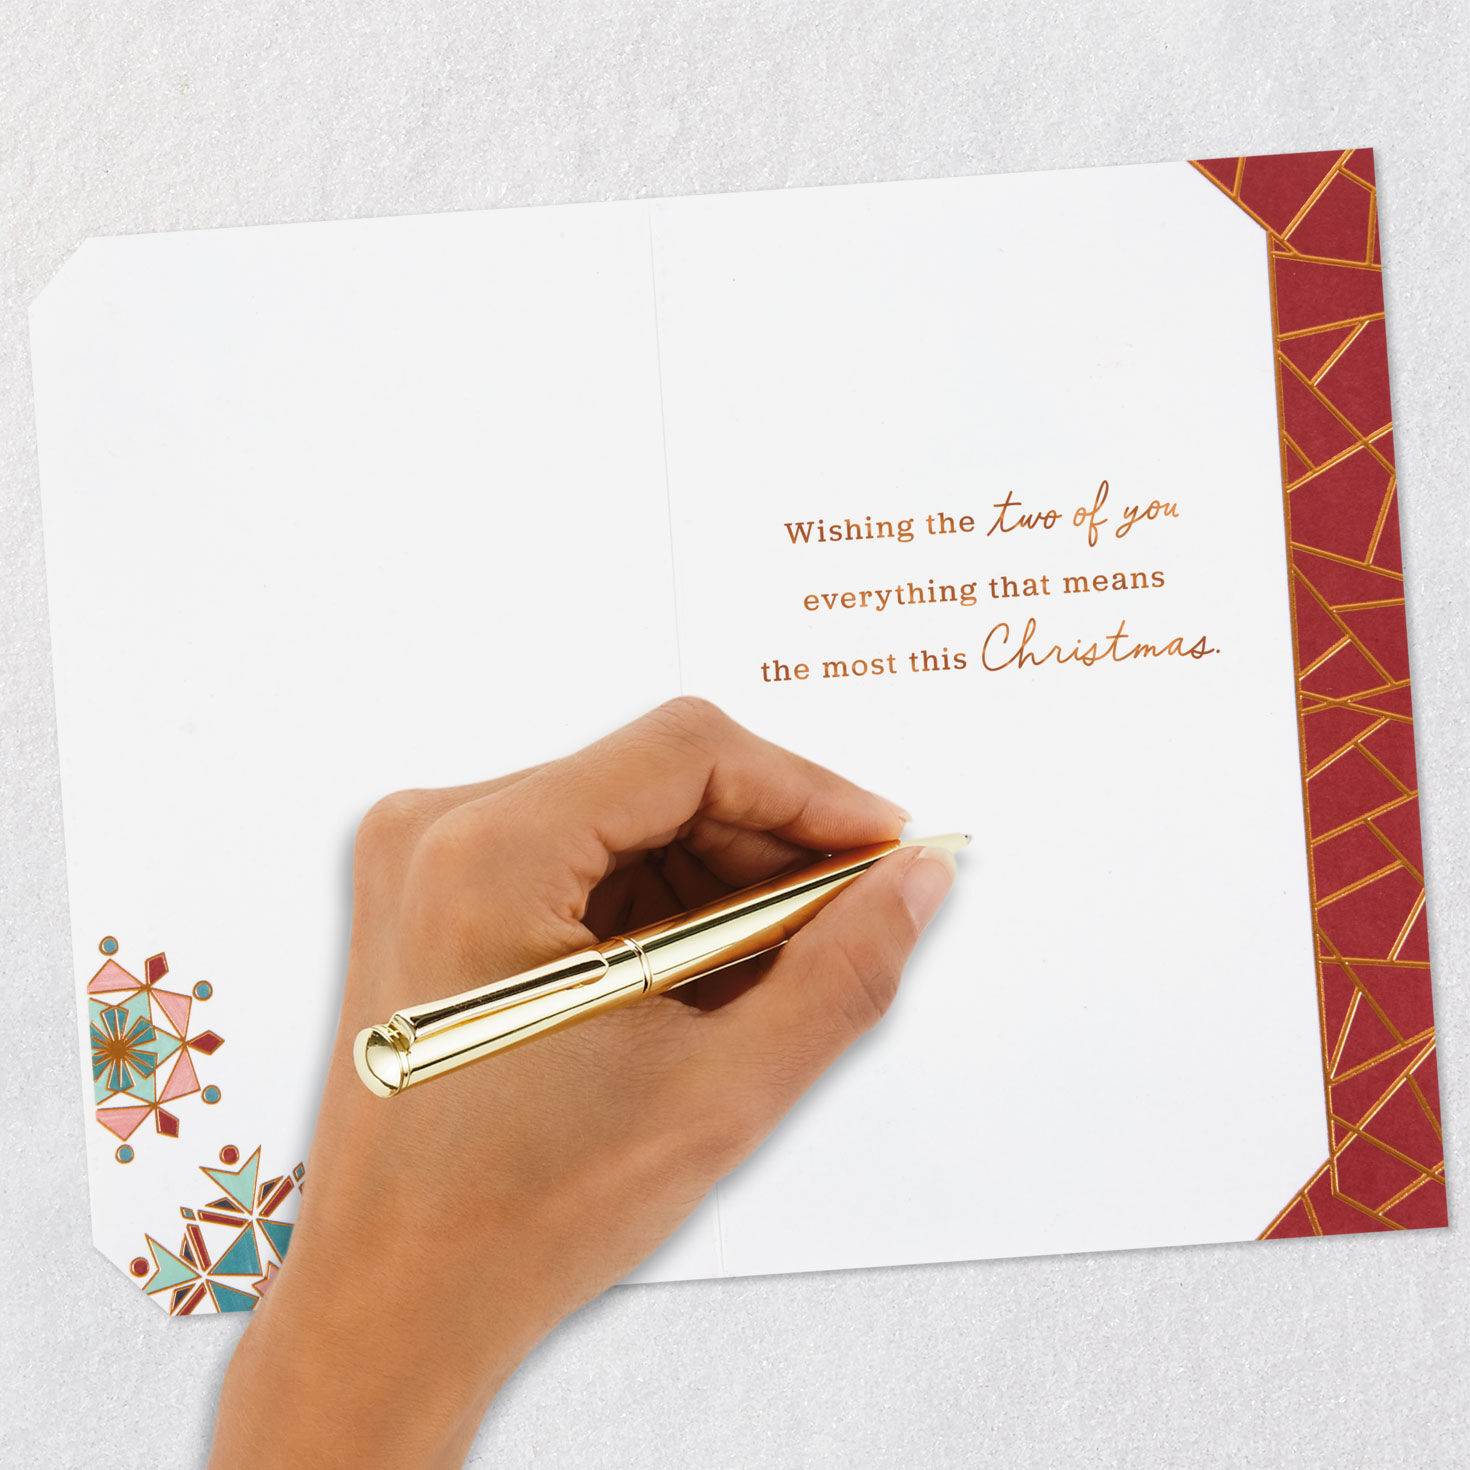 Wishing the two of you
everything that means
the most this Christmas.